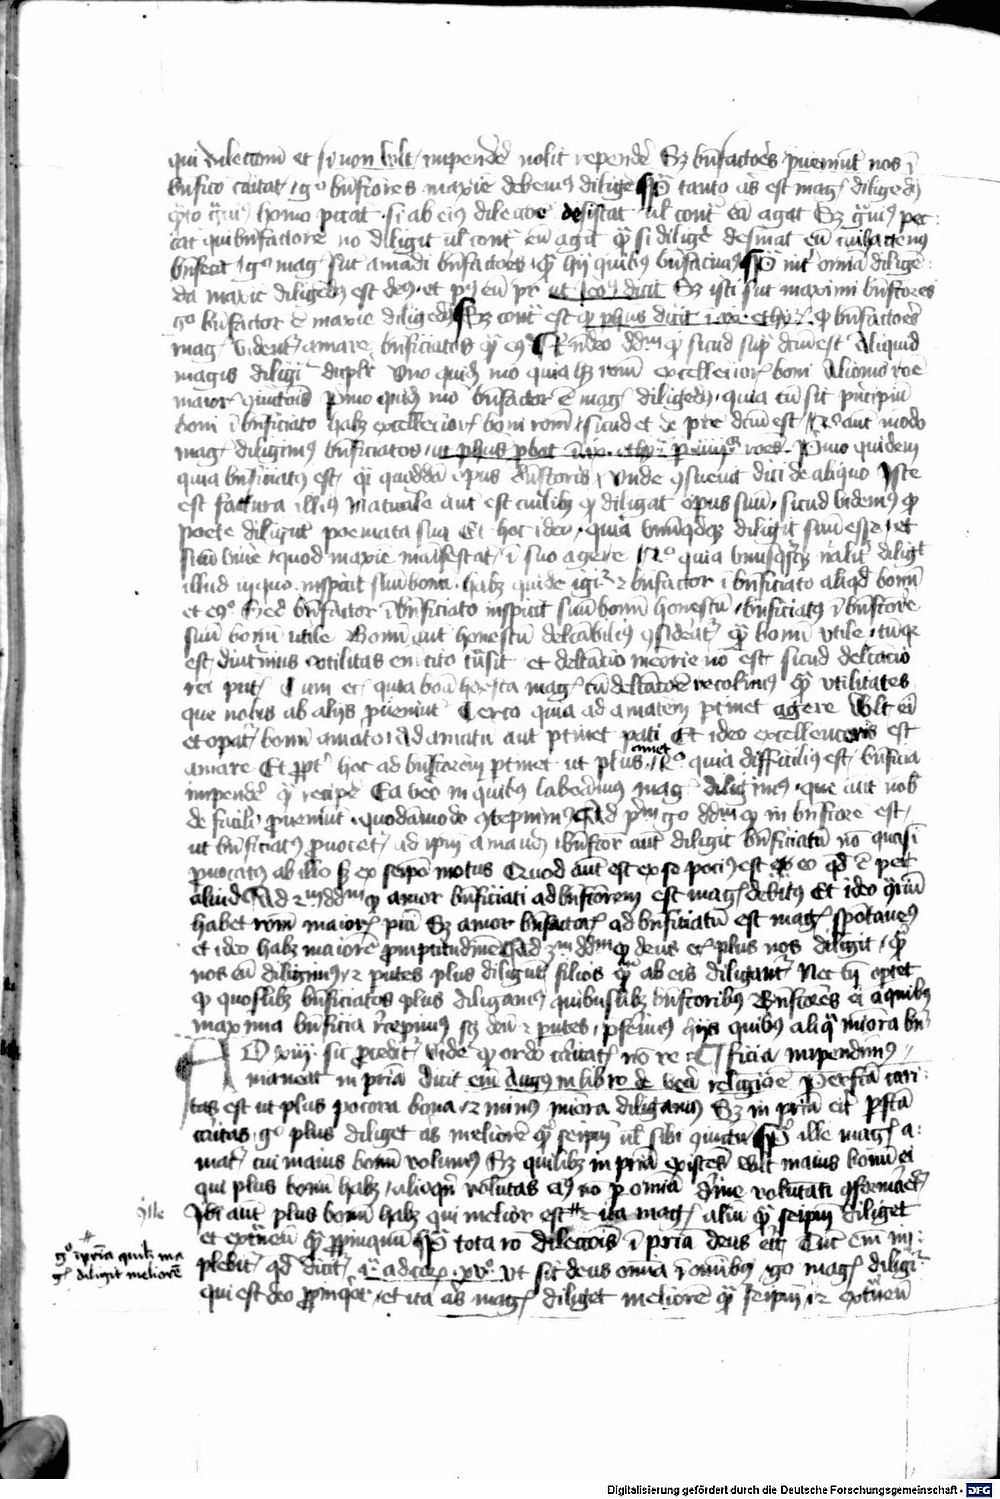 qui dilectionem et si non vult impendere nolit rependere Sed benefactores preveniunt nos in
beneficio caritatis / ergo benefactores maxime debemus diligere Preterea tanto aliquis est magis diligendus
quanto gravius homo peccat si ab eius dilectione desistat vel contra eam agat Sed gravius pec
cat qui benefactorem non diligit vel contra eum agit quam si diligere desinat eum cui hactenus
benefecit / ergo magis sunt amandi benefactores quam hii quibus benefacimus Preterea inter omnia dilige
da maxime diligendus est deus et post eum pater ut Ieronimus dicit Sed isti sunt maximi benefactores
ergo benefactor est maxime diligendus Sed contra est quod philosophus dicit in ix ethicorum quod benefactores
magis videntur amare beneficiatos quam e contra Respondeo dicendum quod sicud supra dictum est Aliquid
magis diligitur dupliciter Uno quidem modo quia habet rationem excellentioris boni Alio modo ratione
maioris coniunctionis primo quidem modo benefactor est magis diligendus quia cum sit principium
boni in beneficiato habet excellentioris boni rationem / sicud et de patre dictum est / Secundo autem modo
magis diligimus beneficiatos / ut philosophus probat in ix ethicorum per quatuor rationes Primo quidem
quia beneficiatus est quasi quoddam opus benefactoris Unde consuevit dici de aliquo Iste
est factura illius Naturale autem est cuilibet quod diligat opus suum sicud videmus quod
poete diligunt poemata sua Et hoc ideo quia unumquodque diligit suum esse / et
suum vivere quod maxime manifestatur in suo agere Secundo quia unusquisque naturaliter diligit
illud in quo inspicit suum bonum habet quidem igitur et benefactor in beneficiato aliquod bonum
et e contra Sed benefactor in beneficiato inspicit suum bonum honestum / beneficiatus in benefactore
suum bonum utile Bonum autem honestum delectabilius consideratur quam bonum utile tum quia
est diuturnius utilitas enim cito transit et delectatio memorie non est sicud delectatio
rei presentis Tum etiam quia bona honesta magis cum delectatione recolimus quam utilitates
que nobis ab aliis proveniunt Tercio quia ad amantem pertinet agere Vult enim
et operatur bonum amato / ad amatum autem pertinet pati Et ideo excellentioris est
amare Et propter hoc ad benefactorem pertinet ut plus amet Quarto quia difficilius est beneficia
impendere quam recipere Ea vero in quibus laboramus magis diligimus que autem nobis
de facili proveniunt quodammodo contempnimus Ad primum ergo dicendum quod in benefactore est
ut beneficiatus provocetur ad ipsum amandum benefactor autem diligit beneficiatum non quasi
provocatus ab illo sed ex seipso motus Quod autem est ex se potius est eo quod est per
aliud Ad secundum dicendum quod amor beneficiati ad benefactorem est magis debitus Et ideo contrarium
habet rationem maioris peccati Sed amor benefactoris ad beneficiatum est magis spontaneus
et ideo habet maiorem promptitudinem Ad tercium dicendum quod deus etiam plus nos diligit quam
nos eum diligimus et parentes plus diligunt filios quam ab eis diligantur Nec tamen oportet
quod quoslibet beneficiatos plus diligamus quibuslibet benefactoribus Benefactores enim a quibus
maxima beneficia recepimus scilicet deum et parentes preferimus hiis quibus aliqua minora bene
Ad xiii sic proceditur videtur quod ordo caritatis non re ficia impendimus
maneat in patria dicit enim Augustinus in libro de vera religione Perfecta cari
tas est ut plus pociora bona et minus minora diligamus Sed in patria erit perfecta
caritas ergo plus diliget aliquis meliorem quam seipsum vel sibi coniunctum Preterea ille magis a
matur cui maius bonum volumus Sed quilibet in patria existens vult maius bonum ei
qui plus bonum habet / alioquin voluntas eius non per omnia divine voluntati conformaretur
Ibi autem plus bonum habet qui melior est ita magis alium quam seipsum diliget
et extraneum quam propinquum Preterea tota ratio dilectionis in patria deus erit Tunc enim im
plebitur quod dicitur ia ad cor xv Ut sit deus omnia in omnibus / ergo magis diligitur
qui est deo propinquior et ita aliquis magis diliget meliorem quam seipsum et extraneum
ille
ergo in patria quilibet ma
gis diligit meliorem
Digitalisierung gefördert durch die Deutsche Forschungsgemeinschaft - DFG